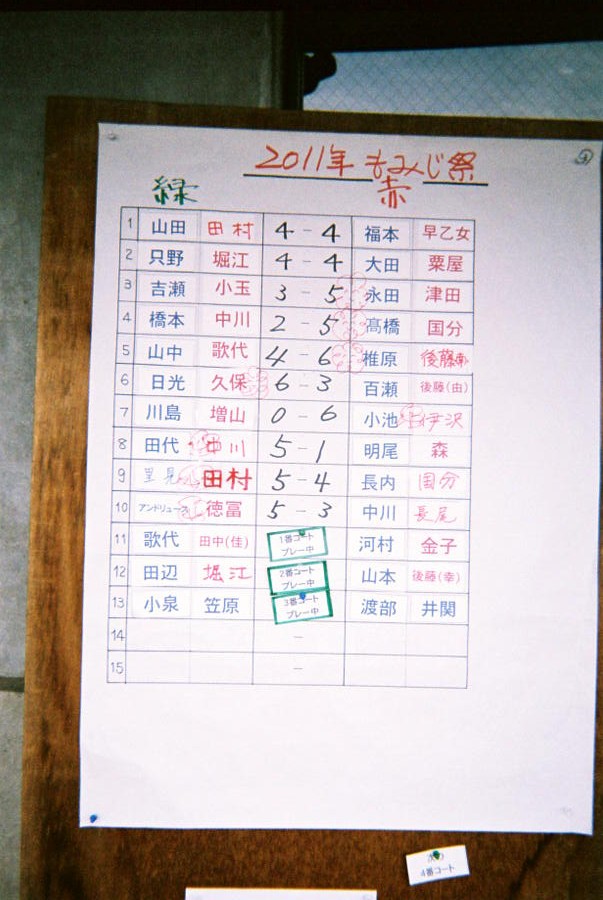 2011年 もみじ祭
緑 赤
1 山田 田村 4 - 4 福本 早乙女
2 只野 堀江 4 - 4 大田 粟屋
3 吉瀬 小玉 3 - 5 永田 津田
4 橋本 中川 2 - 5 髙橋 国分
5 山中 歌代 4 - 6 椎原 後藤
6 日光 久保 6 - 3 百瀬 後藤(由)
7 川島 増山 0 - 6 小池 伊沢
8 田代 中川 5 - 1 明尾 森
9 里見 田村 5 - 4 長内 国分
10 アンドリュース 徳冨 5 - 3 中川 長尾
11 歌代 田中(佳) 1番コート プレー中 河村 金子
12 田辺 堀江 2番コート プレー中 山本 後藤(幸)
13 小泉 笠原 3番コート プレー中 渡部 井関
14 -
15 -
4番コート